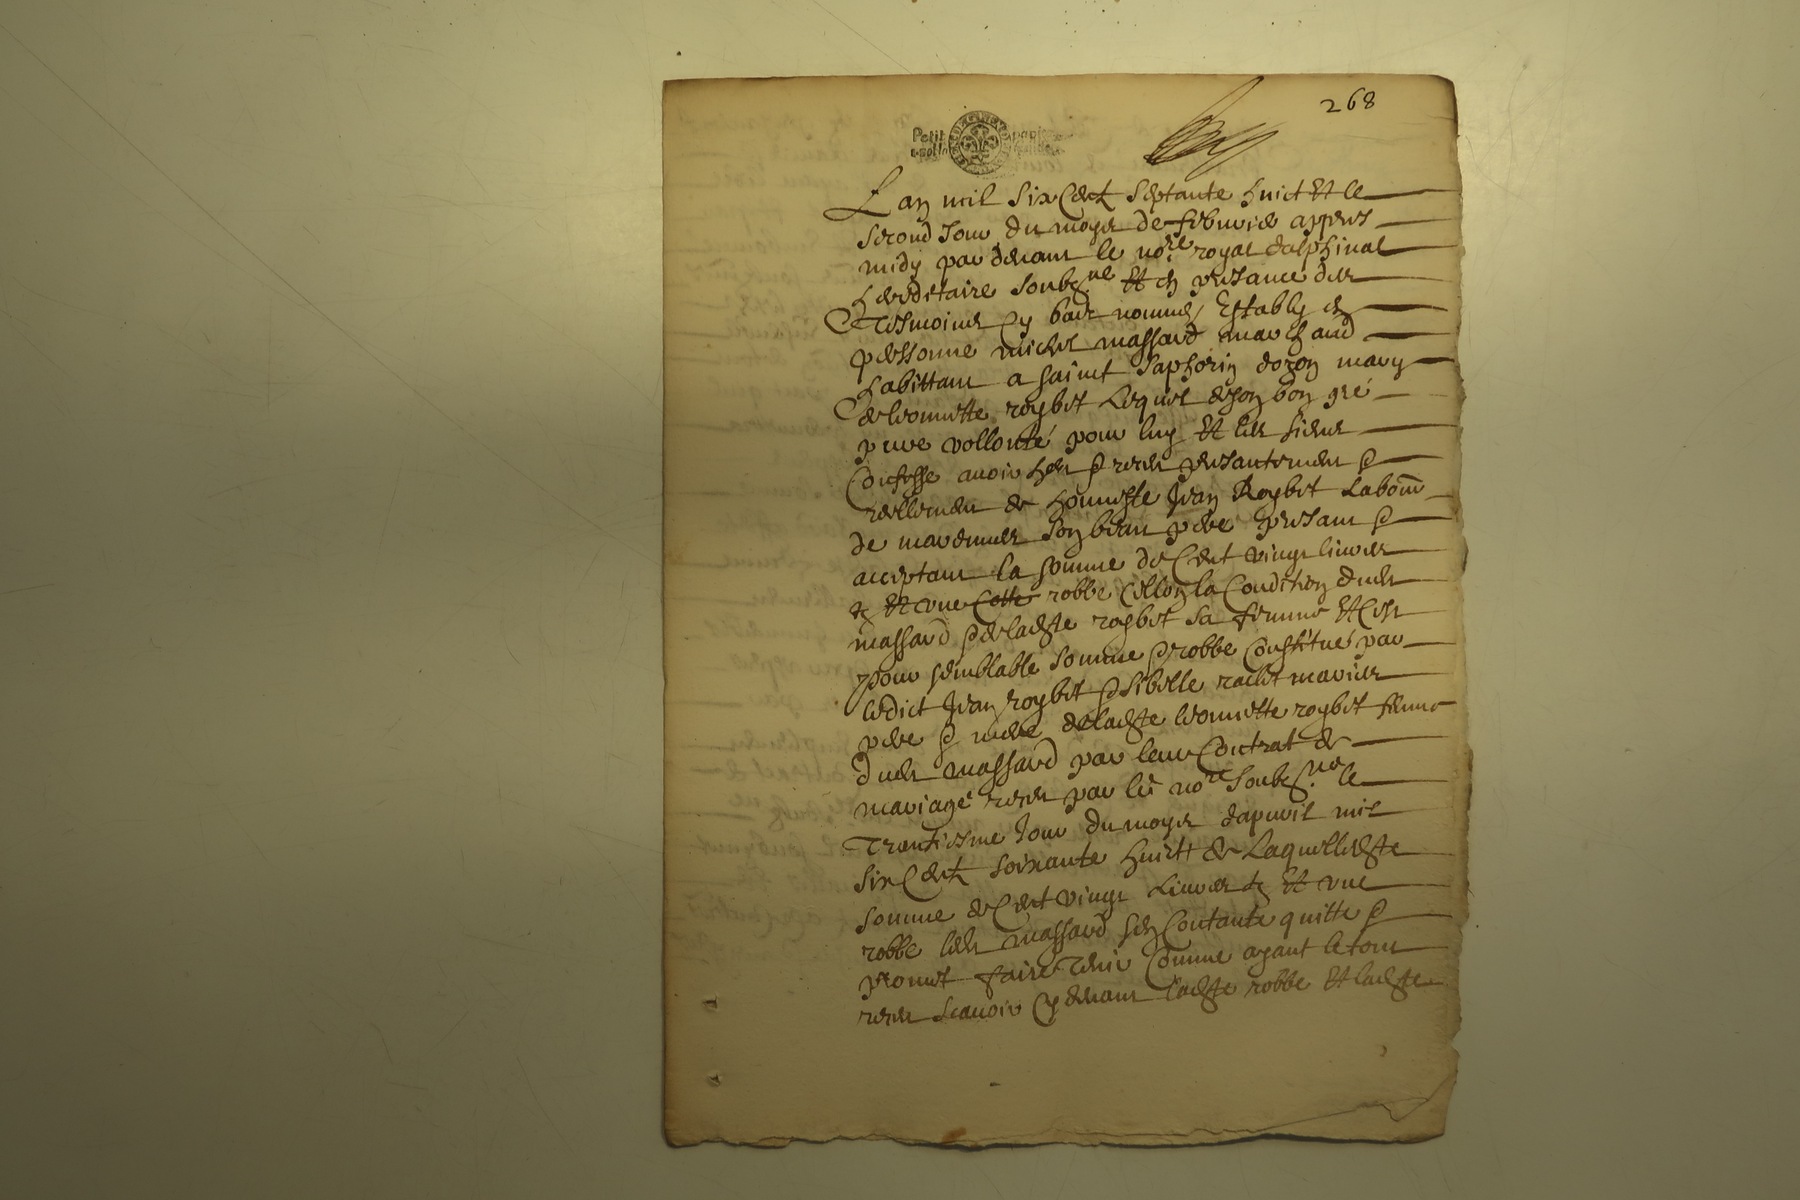 268
Petit papier
Lan mil six Cent septante huict Et le
second Jour du moys de febvrier appres
midy par devant le no.re royal dalphinal
hereditaire soubz.né Et en presance des
Tesmoins Cy bas nommes Estably en
personne michel massard marchand
habittant a saint saphorin dozon mary
de leonnette roybet Lequel de son bon gré
pure vollonté pour luy Et les siens
Confesse avoir heu & receu presantement &
reellement de honneste Jean Roybet Labour.
de marennes son beau pere presant &
acceptant la somme de Cent vingt livres
tz Et une Cotte robbe Cellon la Condition dudit
massard & de ladite roybet sa femme Et Cest
pour semblable somme & robbe Constitués par
ledict Jean roybet & sibelle raclet mariés
pere & mere de ladite leonnette roybet femme
dudit massard par leur Contrat de
mariage receu par les no.re soubz.né le
Trantiesme Jour du moys dapvril mil
six Cent soixante huict de Laquelle dite
somme de Cent vingt Livres tz Et une
robbe ledit massard sen Contante quitte &
promet faire tenir Comme ayant le tout
receu scavoir Cy devant ladite robbe Et ladite